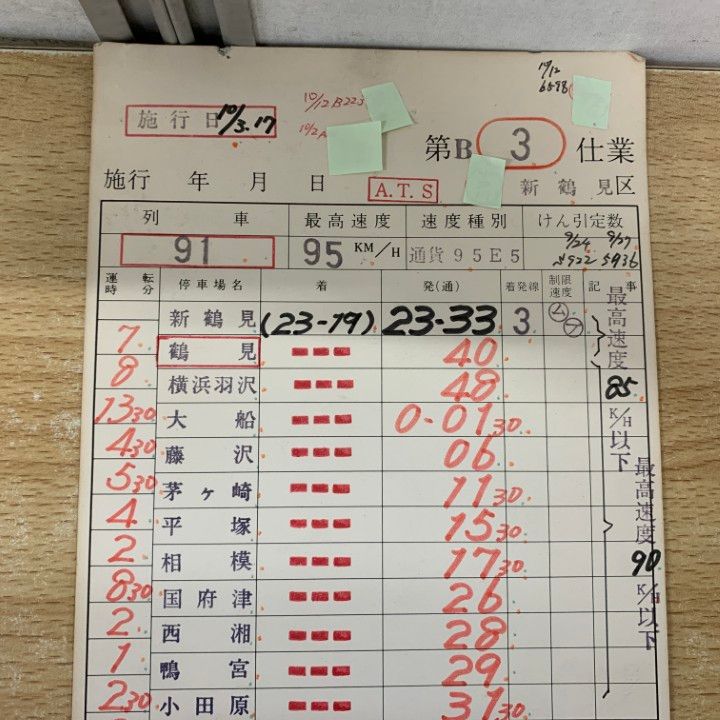 10/12
6598
10/12B223
10/2A
施行日 10/3.17
第B 3 仕業
施行 年 月 日 A.T.S 新鶴見区
列車 最高速度 速度種別 けん引定数
91 95 KM/H 通貨95E5 9/24 9/27
5922 5936
運転時分 停車場名 着 発(通) 着発線 制限速度 記事
新鶴見 (23-19) 23-33 3 ム マ 最高速度
7 鶴見 40
8 横浜羽沢 48 85
13 30 大船 0-01 30 K/H以下
4 30 藤沢 06 最高速度
5 30 茅ヶ崎 11 30
4 平塚 15 30
2 相模 17 30 90
8 30 国府津 26 K/H以下
2 西湘 28
1 鴨宮 29
2 30 小田原 31 30